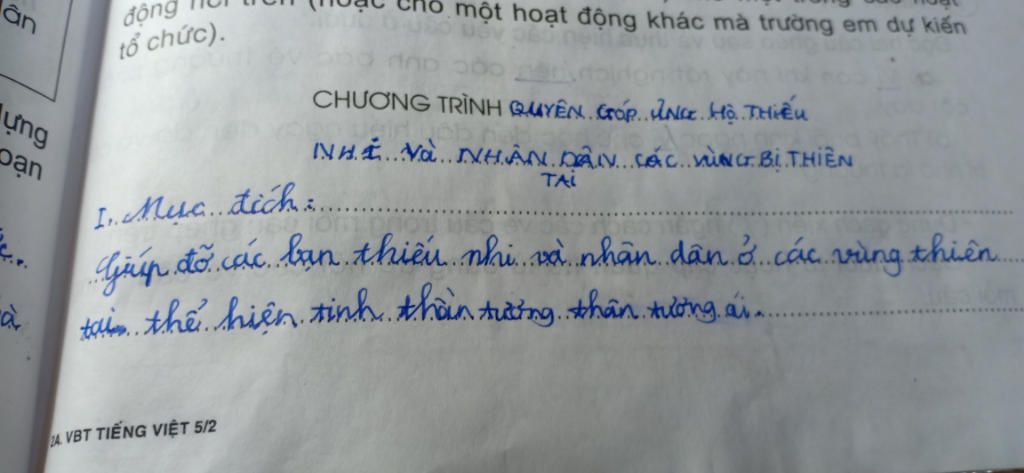 ân
động nói trên (hoặc cho một hoạt động khác mà trường em dự kiến
tổ chức).
lựng
oạn
CHƯƠNG TRÌNH QUYÊN GÓP ỦNG HỘ THIẾU
NHI VÀ NHÂN DÂN CÁC VÙNG BỊ THIÊN
TAI
I. Mục đích:
Giúp đỡ các bạn thiếu nhi và nhân dân ở các vùng thiên
tai thể hiện tinh thần tương thân tương ái.
2A. VBT TIẾNG VIỆT 5/2